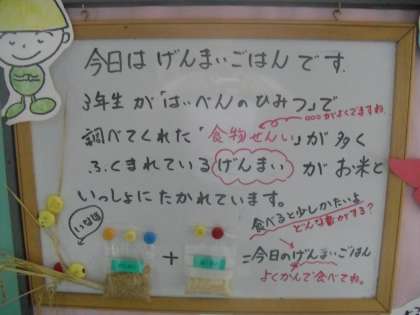 今日は げんまいごはん です.
3年生 が「はいべんのひみつ」で
○○○がよくでますね
調べてくれた「食物せんい」が 多く
ふくまれている げんまい が お米と
いっしょに たかれています。
いなほ
食べると少しかたいよ
どんな音がする?
+
=今日のげんまいごはん
よくかんで食べてね。